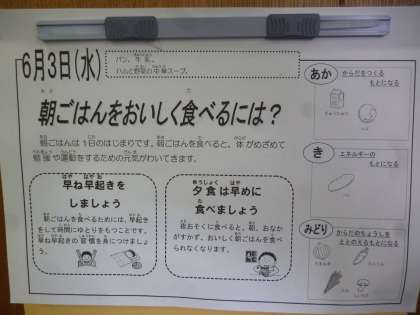 6月3日(水)
パン、牛乳、
ハムと野菜の中華スープ、
朝ごはんをおいしく食べるには?
朝ごはんは1日のはじまりです。朝ごはんを食べると、体がめざめて
勉強や運動をするための元気がわいてきます。
早ね早起きを
しましょう
朝ごはんを食べるためには、早起き
をして時間にゆとりをもつことです。
早ね早起きの習慣を身につけましょ
う。
夕食は早めに
食べましょう
夜おそくに食べると、朝、おなか
がすかず、おいしく朝ごはんを食べ
られなくなります。
あか
からだをつくる
もとになる
ぎゅうにゅう
ハム
き
エネルギーの
もとになる
パン
みどり
からだのちょうしを
ととのえるもとになる
たまねぎ
にんじん